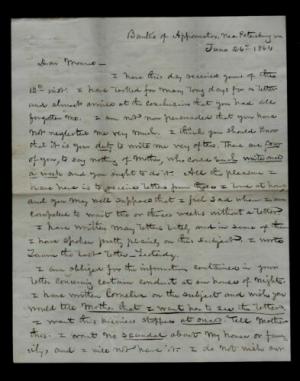 Banks of Appomattox, Near Petersburg Va
June 26th 1864
Dear Monro —
I have this day received yours of the
18th inst. I have looked for many long days for a letter
and almost arrived at the conclusion that you had all
forgotten me. I am not now persuaded that you have
not neglected me very much. I think you should know
that it is your duty to write me very often. There are
of you, to say nothing of Mother, who could each write once
a week and you ought to do it. All the pleasure I
have here is to receive letters from those I love at home
and you may well suppose that I feel sad when I am
compelled to wait two or three weeks without a letter.
I have written many letters lately, and in some of them
I have spoken pretty plainly on this subject. I wrote
Laura the last letter — yesterday.
I am obliged for the information contained in your
letter concerning certain conduct at our house of nights.
I have written Cornelia on the subject and wish you
would tell Mother that I want her to see the letter.
I want this business stopped at once. Tell Mother
this. I want no scandal about my house or fam
ily, and I will not have it. I do not wish our